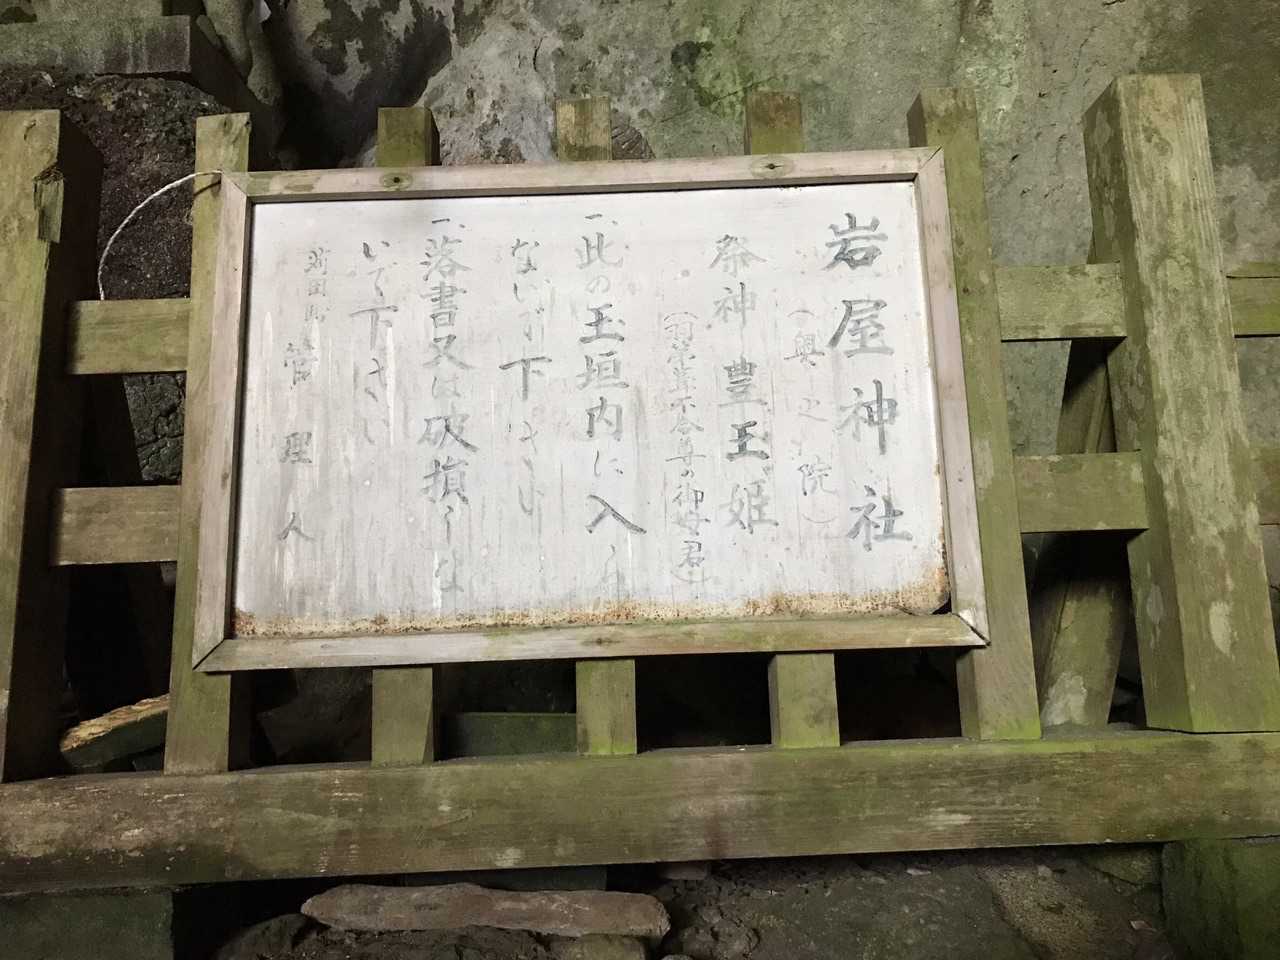 岩屋神社
（奥之院）
祭神 豊玉姫
（羽葺不合尊の御母君）
一、此の玉垣内に入ら
ないで下さい
一、落書又は破損しな
いで下さい
苅田町
管理人